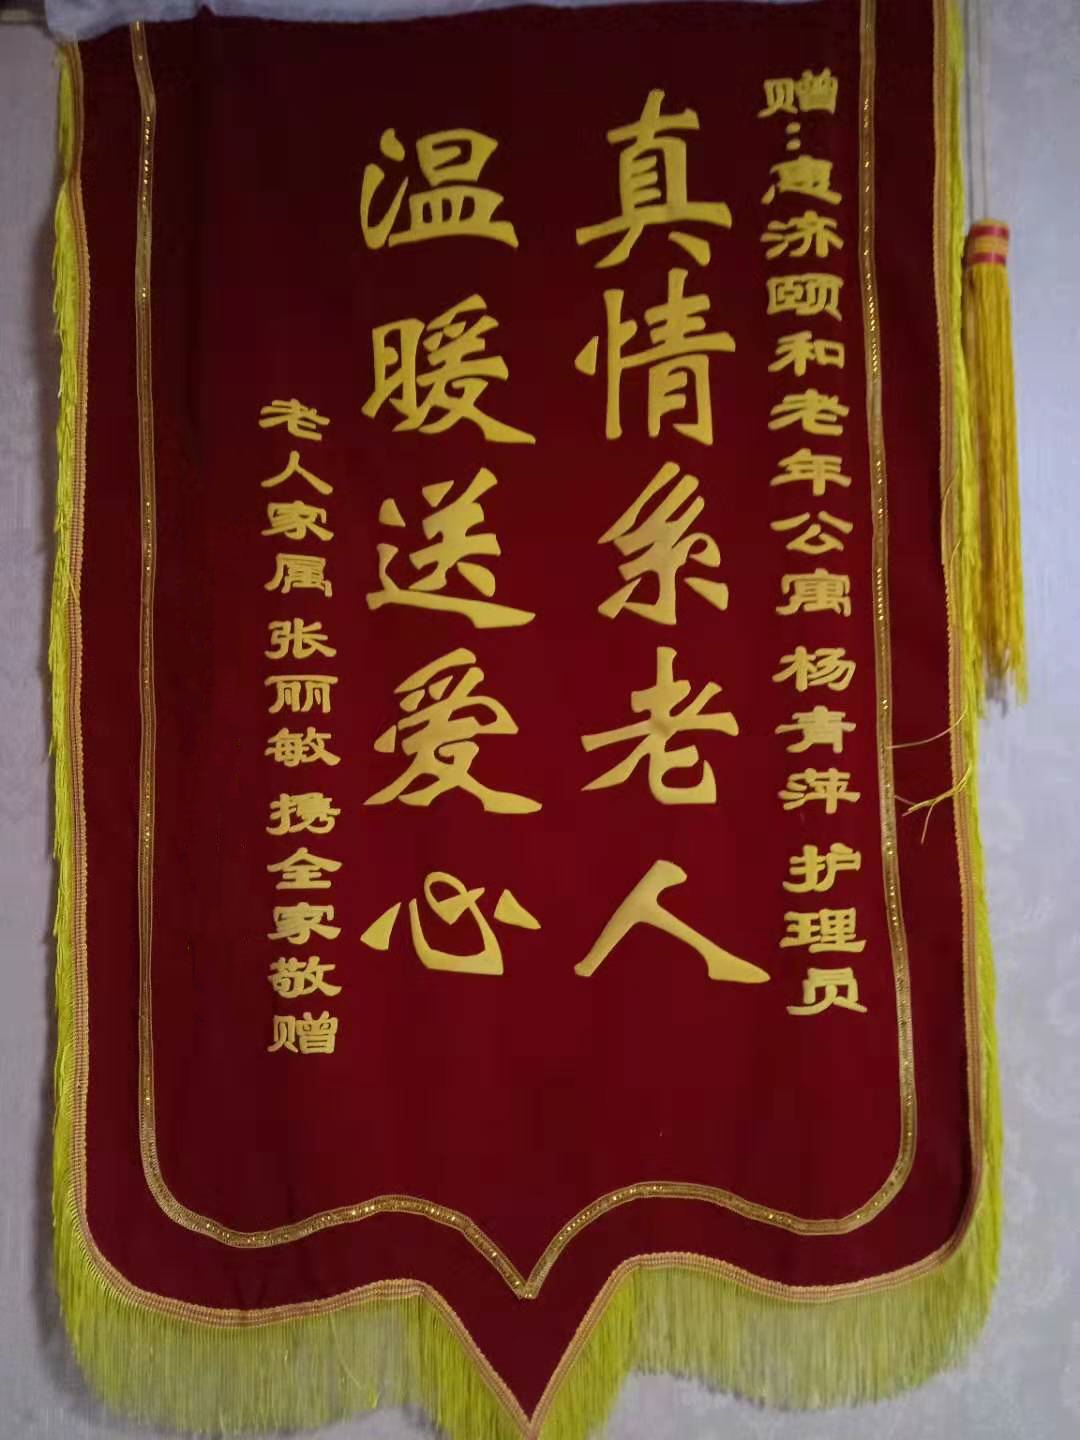 赠:惠济颐和老年公寓 杨青萍 护理员
真情系老人
温暖送爱心
老人家属 张丽敏 携全家敬赠